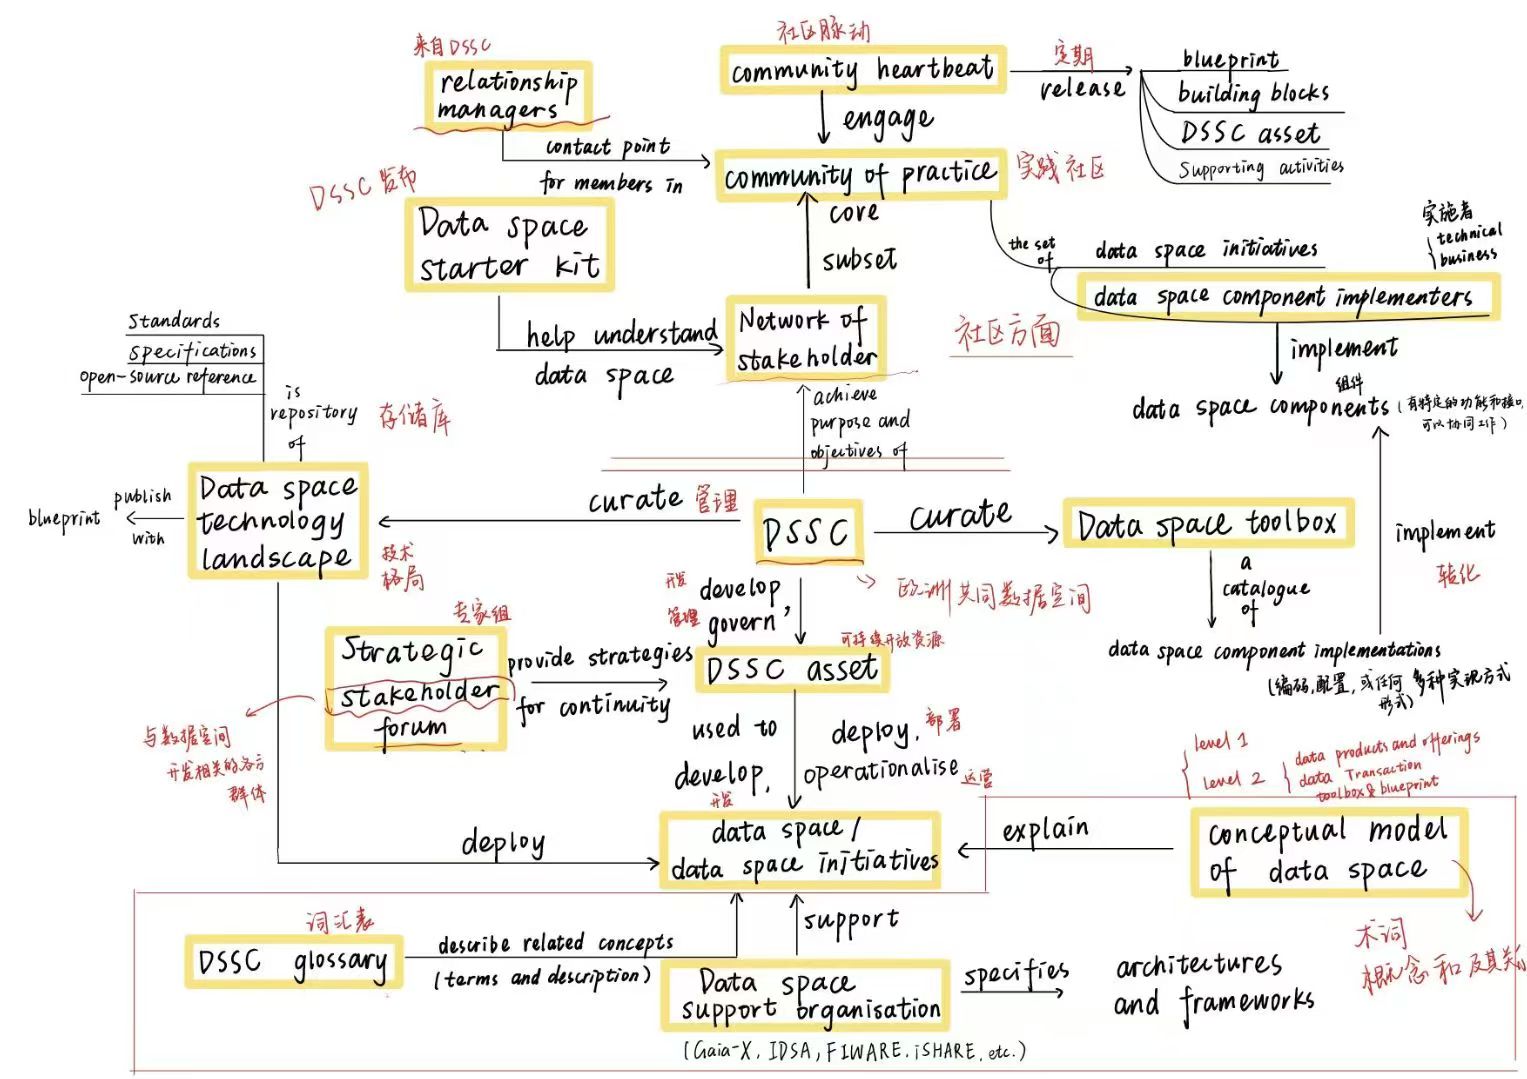 来自DSSC
relationship
managers
社区脉动
community heartbeat
定期
release
blueprint
building blocks
DSSC asset
Supporting activities
engage
contact point
for members in
community of practice
实践社区
DSSC发布
Data space
starter kit
core
subset
the set
of
data space initiatives
实施者
technical
business
data space component implementers
help understand
data space
Network of
stakeholder
社区方面
implement
组件
data space components
(有特定的功能和接口,
可以协同工作)
Standards
specifications
open-source reference
is
repository
of
存储库
achieve
purpose and
objectives of
Data space
technology
landscape
技术
格局
publish
with
blueprint
curate 管理
DSSC
curate
Data space toolbox
欧洲共同数据空间
implement
转化
a
catalogue
of
data space component implementations
(编码,配置,或任何
形式)
多种实现方式
开发
管理
develop,
govern
可持续开放资源
DSSC asset
专家组
Strategic
stakeholder
forum
provide strategies
for continuity
与数据空间
开发相关的各方
群体
used to
develop,
开发
deploy,
部署
operationalise
运营
level 1
level 2
data products and offerings
data Transaction
toolbox & blueprint
deploy
data space/
data space initiatives
explain
conceptual model
of data space
概念和及其关
词汇表
DSSC glossary
describe related concepts
(terms and description)
support
Data space
support organisation
(Gaia-X, IDSA, FIWARE, iSHARE, etc.)
specifies
architectures
and frameworks